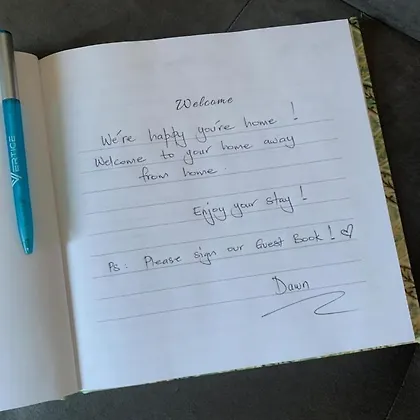 Welcome
We're happy you're home !
Welcome to your home away
from home.
Enjoy your stay !
Ps: Please sign our Guest Book ! ♡
Dawn
VERTICE